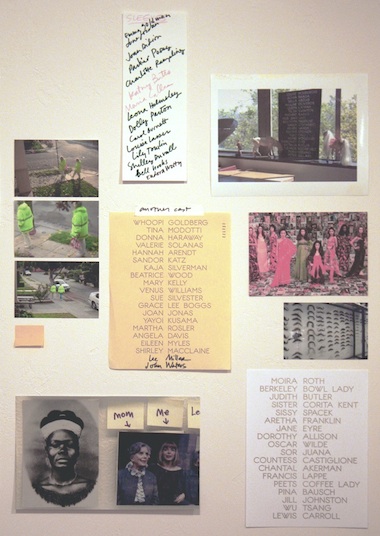 Emma Goldman
Joan Jonas
Joan Didion
Parker Posey
Charlotte Rampling
Leona Helmsley
Dolly Parton
Carol Burnett
Louise Lasser
Lily Tomlin
Shelley Duvall
bell hooks
Eudora Welty
another cast
WHOOPI GOLDBERG
TINA MODOTTI
DONNA HARAWAY
VALERIE SOLANAS
HANNAH ARENDT
SANDOR KATZ
KAJA SILVERMAN
BEATRICE WOOD
MARY KELLY
VENUS WILLIAMS
SUE SILVESTER
GRACE LEE BOGGS
JOAN JONAS
YAYOI KUSAMA
MARTHA ROSLER
ANGELA DAVIS
EILEEN MYLES
SHIRLEY MACCLAINE
Lee Miller
John Waters
Mom
Me
MOIRA ROTH
BERKELEY BOWL LADY
JUDITH BUTLER
SISTER CORITA KENT
SISSY SPACEK
ARETHA FRANKLIN
JANE EYRE
DOROTHY ALLISON
OSCAR WILDE
SOR JUANA
COUNTESS CASTIGLIONE
CHANTAL AKERMAN
FRANCIS LAPPE
PEETS COFFEE LADY
PINA BAUSCH
JILL JOHNSTON
WU TSANG
LEWIS CARROLL